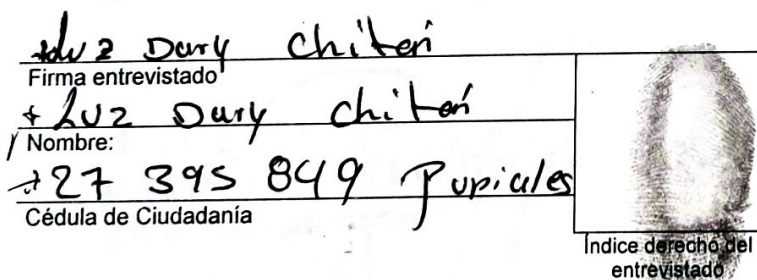 Luz Dary Chiten
Firma entrevistado
Luz Dary Chiten
Nombre:
27 395 849 Pupiales
Cédula de Ciudadanía
Índice derecho del
entrevistado